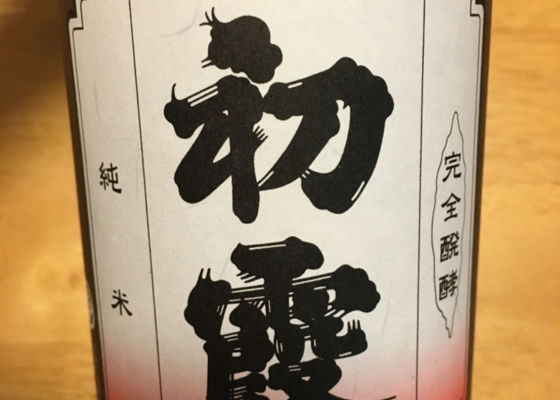 完全醗酵
初霞
純米